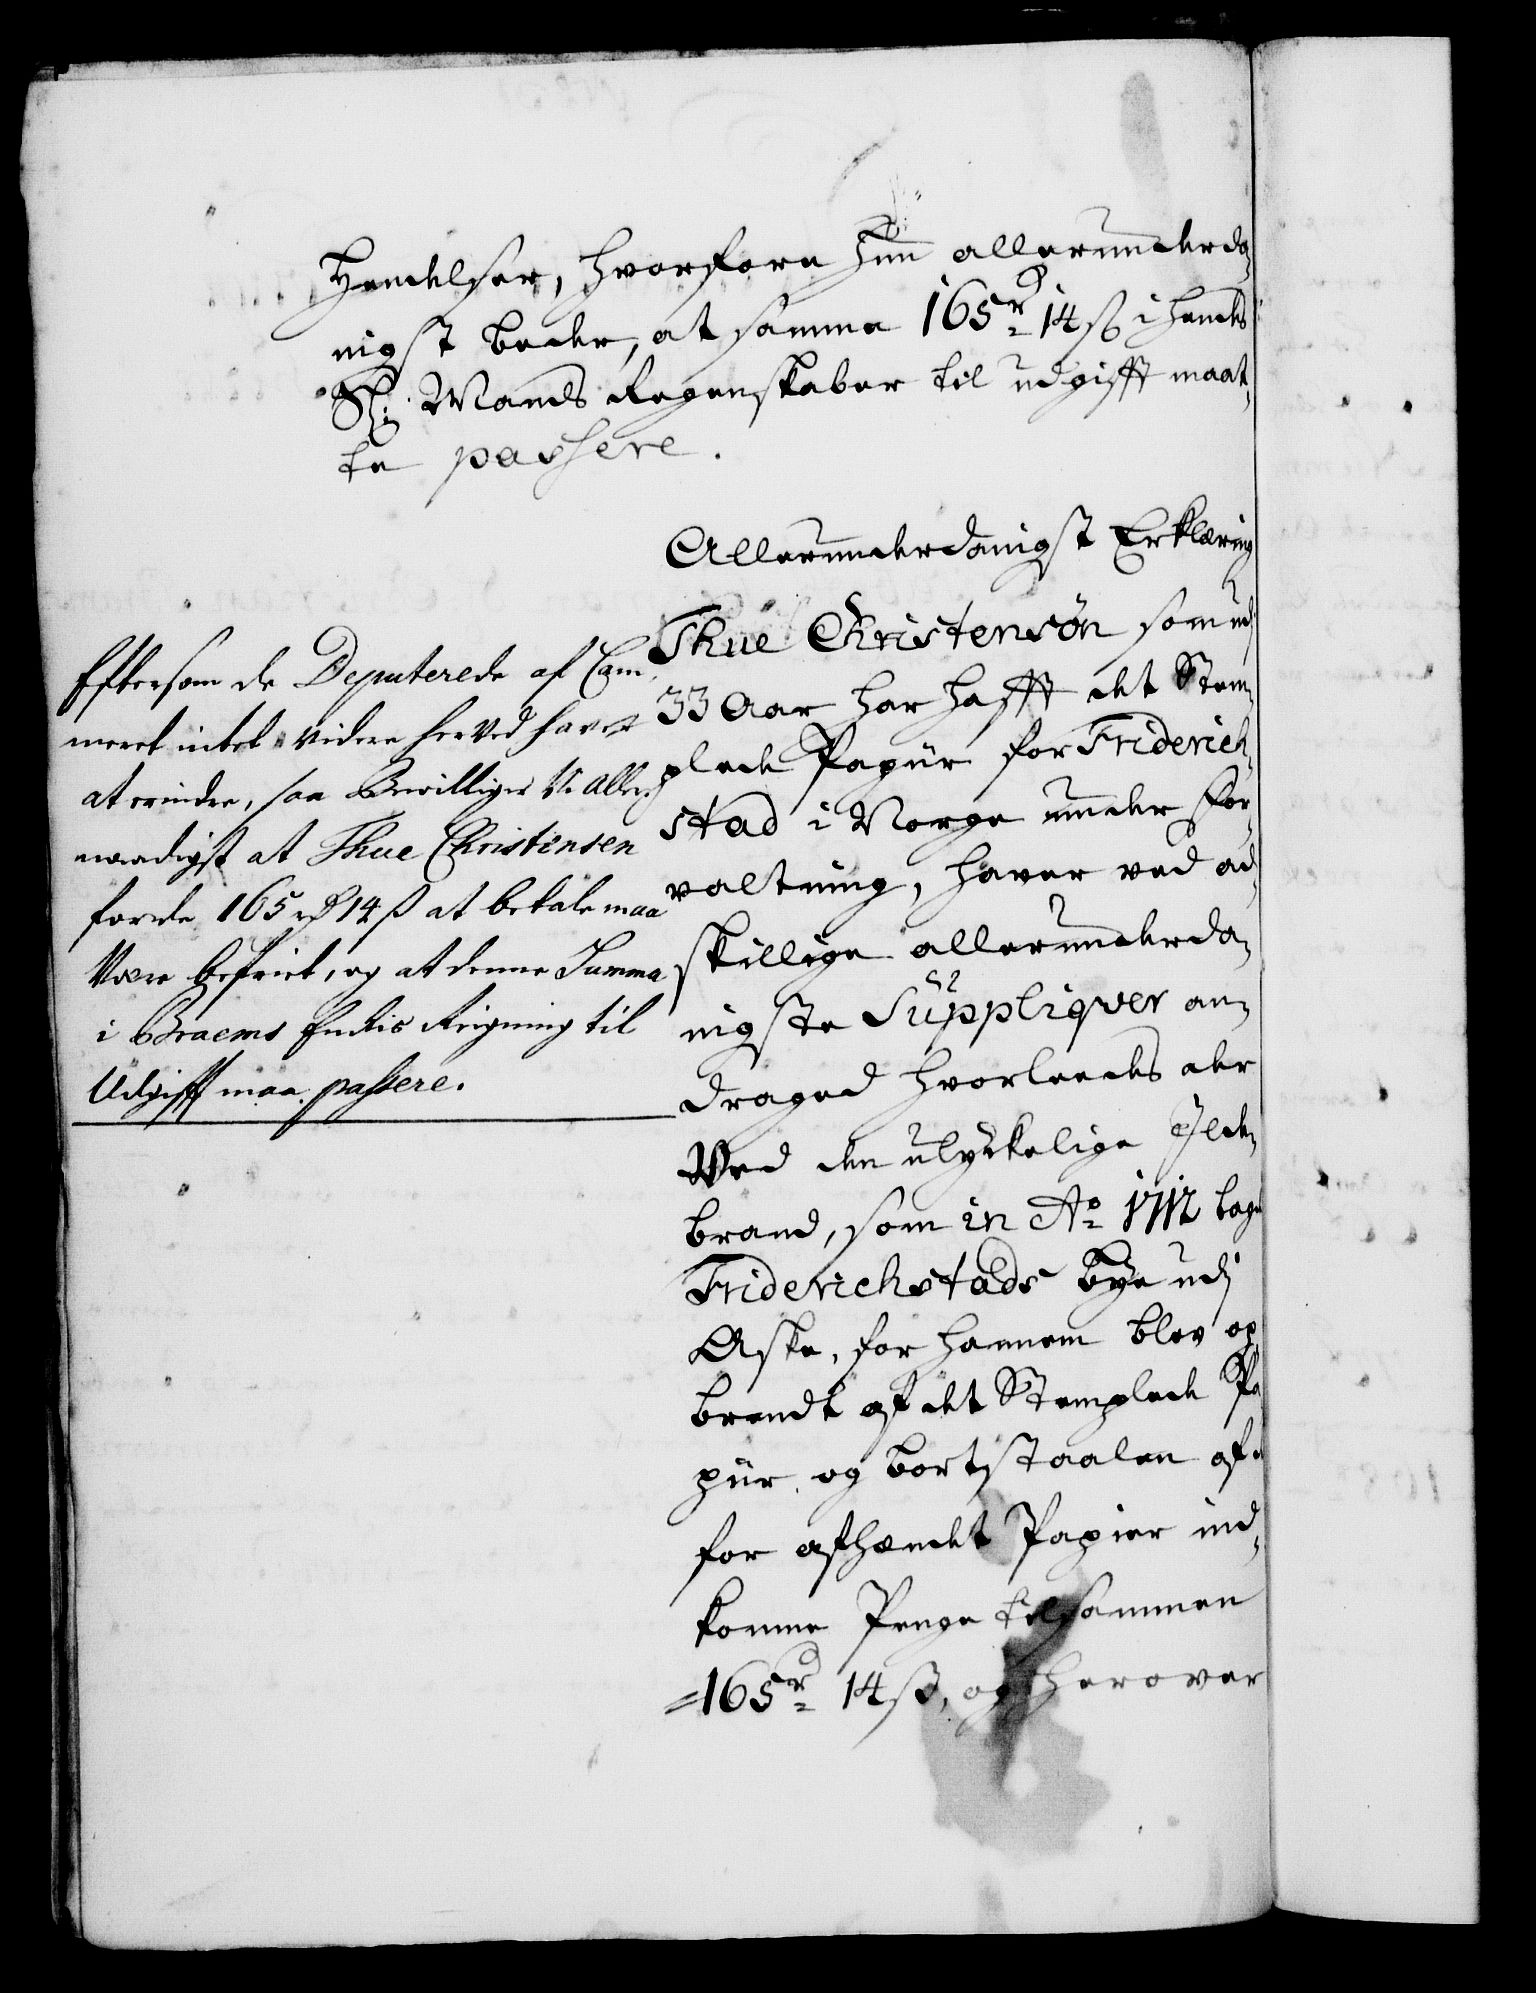 Hendelser, hvorfore hun allerunderda,
nigst beder, at samme 165 rd 14 ß i hendes
Sl: Mands Regenskaber til udgifft maat,
te passere.
Allerunderdanigst Erklæring
Thue Christensøn som udj
33 Aar har hafft det Stem,
plede Papiir for Friderich,
stad i Norge under for,
valtning, haver ved ad,
skillige allerunderda,
nigste Suppliqver an,
draged hvorleedes der
Ved den ulyckelige Ilde,
brand, som in Ao 1712 lagde
Friderichstads bye udj
Aske, for hannem blev op
brendt af det Stemplede Pa
piir, og bortstaalen af
for afhændet Papier ind,
komne Penge tilsammen
165 rd 14 ß, og herover
Eftersom de Deputerede af Cam,
meret intet videre herved haver
at erindre, saa Bewilliger Vi Aller,
naadigst at Thue Christensen
forrde 165 rd 14 ß at betale maa
være befriet, og at denne Summa
i Braems Enckis Reigning til
Udgifft maa passere.